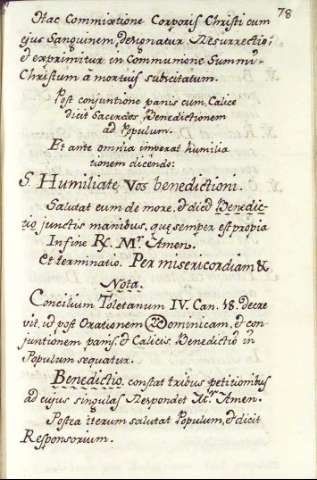 78
Hac Commixtione Corporis Christi cum
ejus Sanguinem, designatur Resurrectio;
& exprimitur in Communione Summi
Christum a mortuis subscitatum.
Post conjuntione panis cum Calice
dicit Sacerdos Benedictionem
ad Populum.
Et ante omnia imperat humilia
tionem dicendo:
S. Humiliate vos benedictioni.
Salutat eum de more, & dicit Benedic-
tio junctis manibus, que semper est propia
Infine R. Mr. Amen.
Et terminatio. Per misericordiam &
Nota.
Concilium Toletanum IV. Can. 18. decre
vit, ut post Orationem Dominicam, & con-
juntionem panis, & Calicis Benedictio in
Populum sequatur.
Benedictio constat tribus petitionibus
ad cujus singulas Respondet Mr. Amen.
Postea iterum salutat Populum, & dicit
Responsorium.